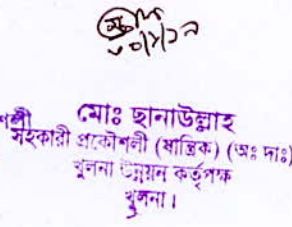 মোঃ ছানাউল্লাহ
সহকারী প্রকৌশলী (যান্ত্রিক) (অঃ দাঃ)
খুলনা উন্নয়ন কর্তৃপক্ষ
খুলনা।